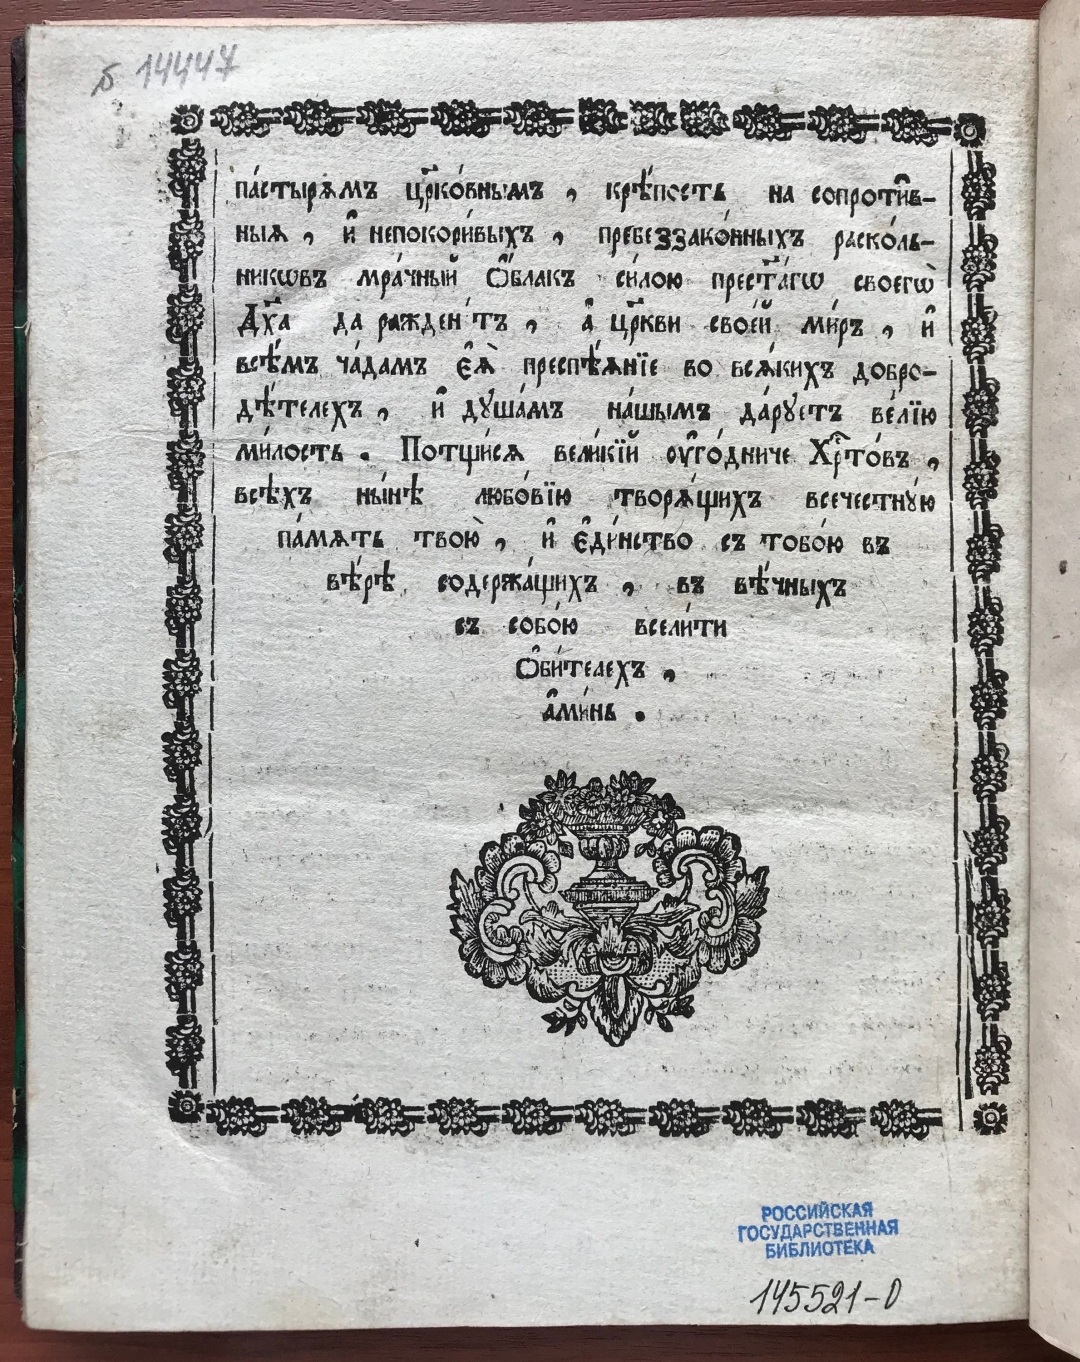 Б 14447
па́стырѧмъ цр҃ко́внымъ , крѣ́пость на сопроти̑в-
ныѧ , и҆ непокори́выхъ , пребеззако́нныхъ раско́ль-
никѡвъ мра́чный ѻ҆́блакъ си́лою прест҃а́гѡ своегѡ̀
Дх҃а да раждени́тъ , а҆ цр҃кви свое́й ми́ръ , и҆
всѣ́мъ ча́дамъ є҆ѧ̀ преспѣ́ѧнїе во всѧ́кихъ добро-
дѣ́телехъ , и҆ дꙋша́мъ на́шымъ да́рꙋетъ ве́лїю
ми́лость . Потщи́сѧ вели́кїй ᲂу҆го́дниче Хрⷭ҇то́въ ,
всѣ́хъ ны́нѣ любо́вїю творѧ́щихъ всечестнꙋ́ю
па́мѧть твою̀ , и҆ є҆ди́нство съ тобо́ю въ
вѣ́рѣ содержа́щихъ , въ вѣ́чныхъ
съ собо́ю всели́ти
ѻ҆би́телехъ ,
а҆ми́нь .
РОССИЙСКАЯ
ГОСУДАРСТВЕННАЯ
БИБЛИОТЕКА
145521-0